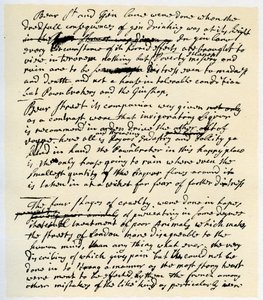 Bear St and Gin Lane were done when the
dreadfull consequences of gin drinking was at its hight
in
every circumstance of its horrid effects are brought to
view in terorem nothing but Poverty misery and
ruin are to be seen Distress even to madness
and death, and not a house in tolerable condition
but Pawnbrokers and the Ginshop.
Bear Street its companion was given
as a contrast were that invigorating liquor
is recommend in order drive the other out of
vogue. here all is Joyous and
hand in hand the Pawnbroker in this happy place
is the only house going to ruin where even the
smallest quantity of the liquor flows around it
is taken in at a wicket for fear of further distress
The four stages of cruelty. were done in hopes
of preventing in some degree
that cruel treatment of poor Animals which makes
the streets of London more disagreable to the
human mind, than any thing what ever. the very
discribing of which gives pain but this could not be
done in too strong a manner as the most stony heart
were ment to be effected by them. the french among
other mistakes of the like kind, particularly